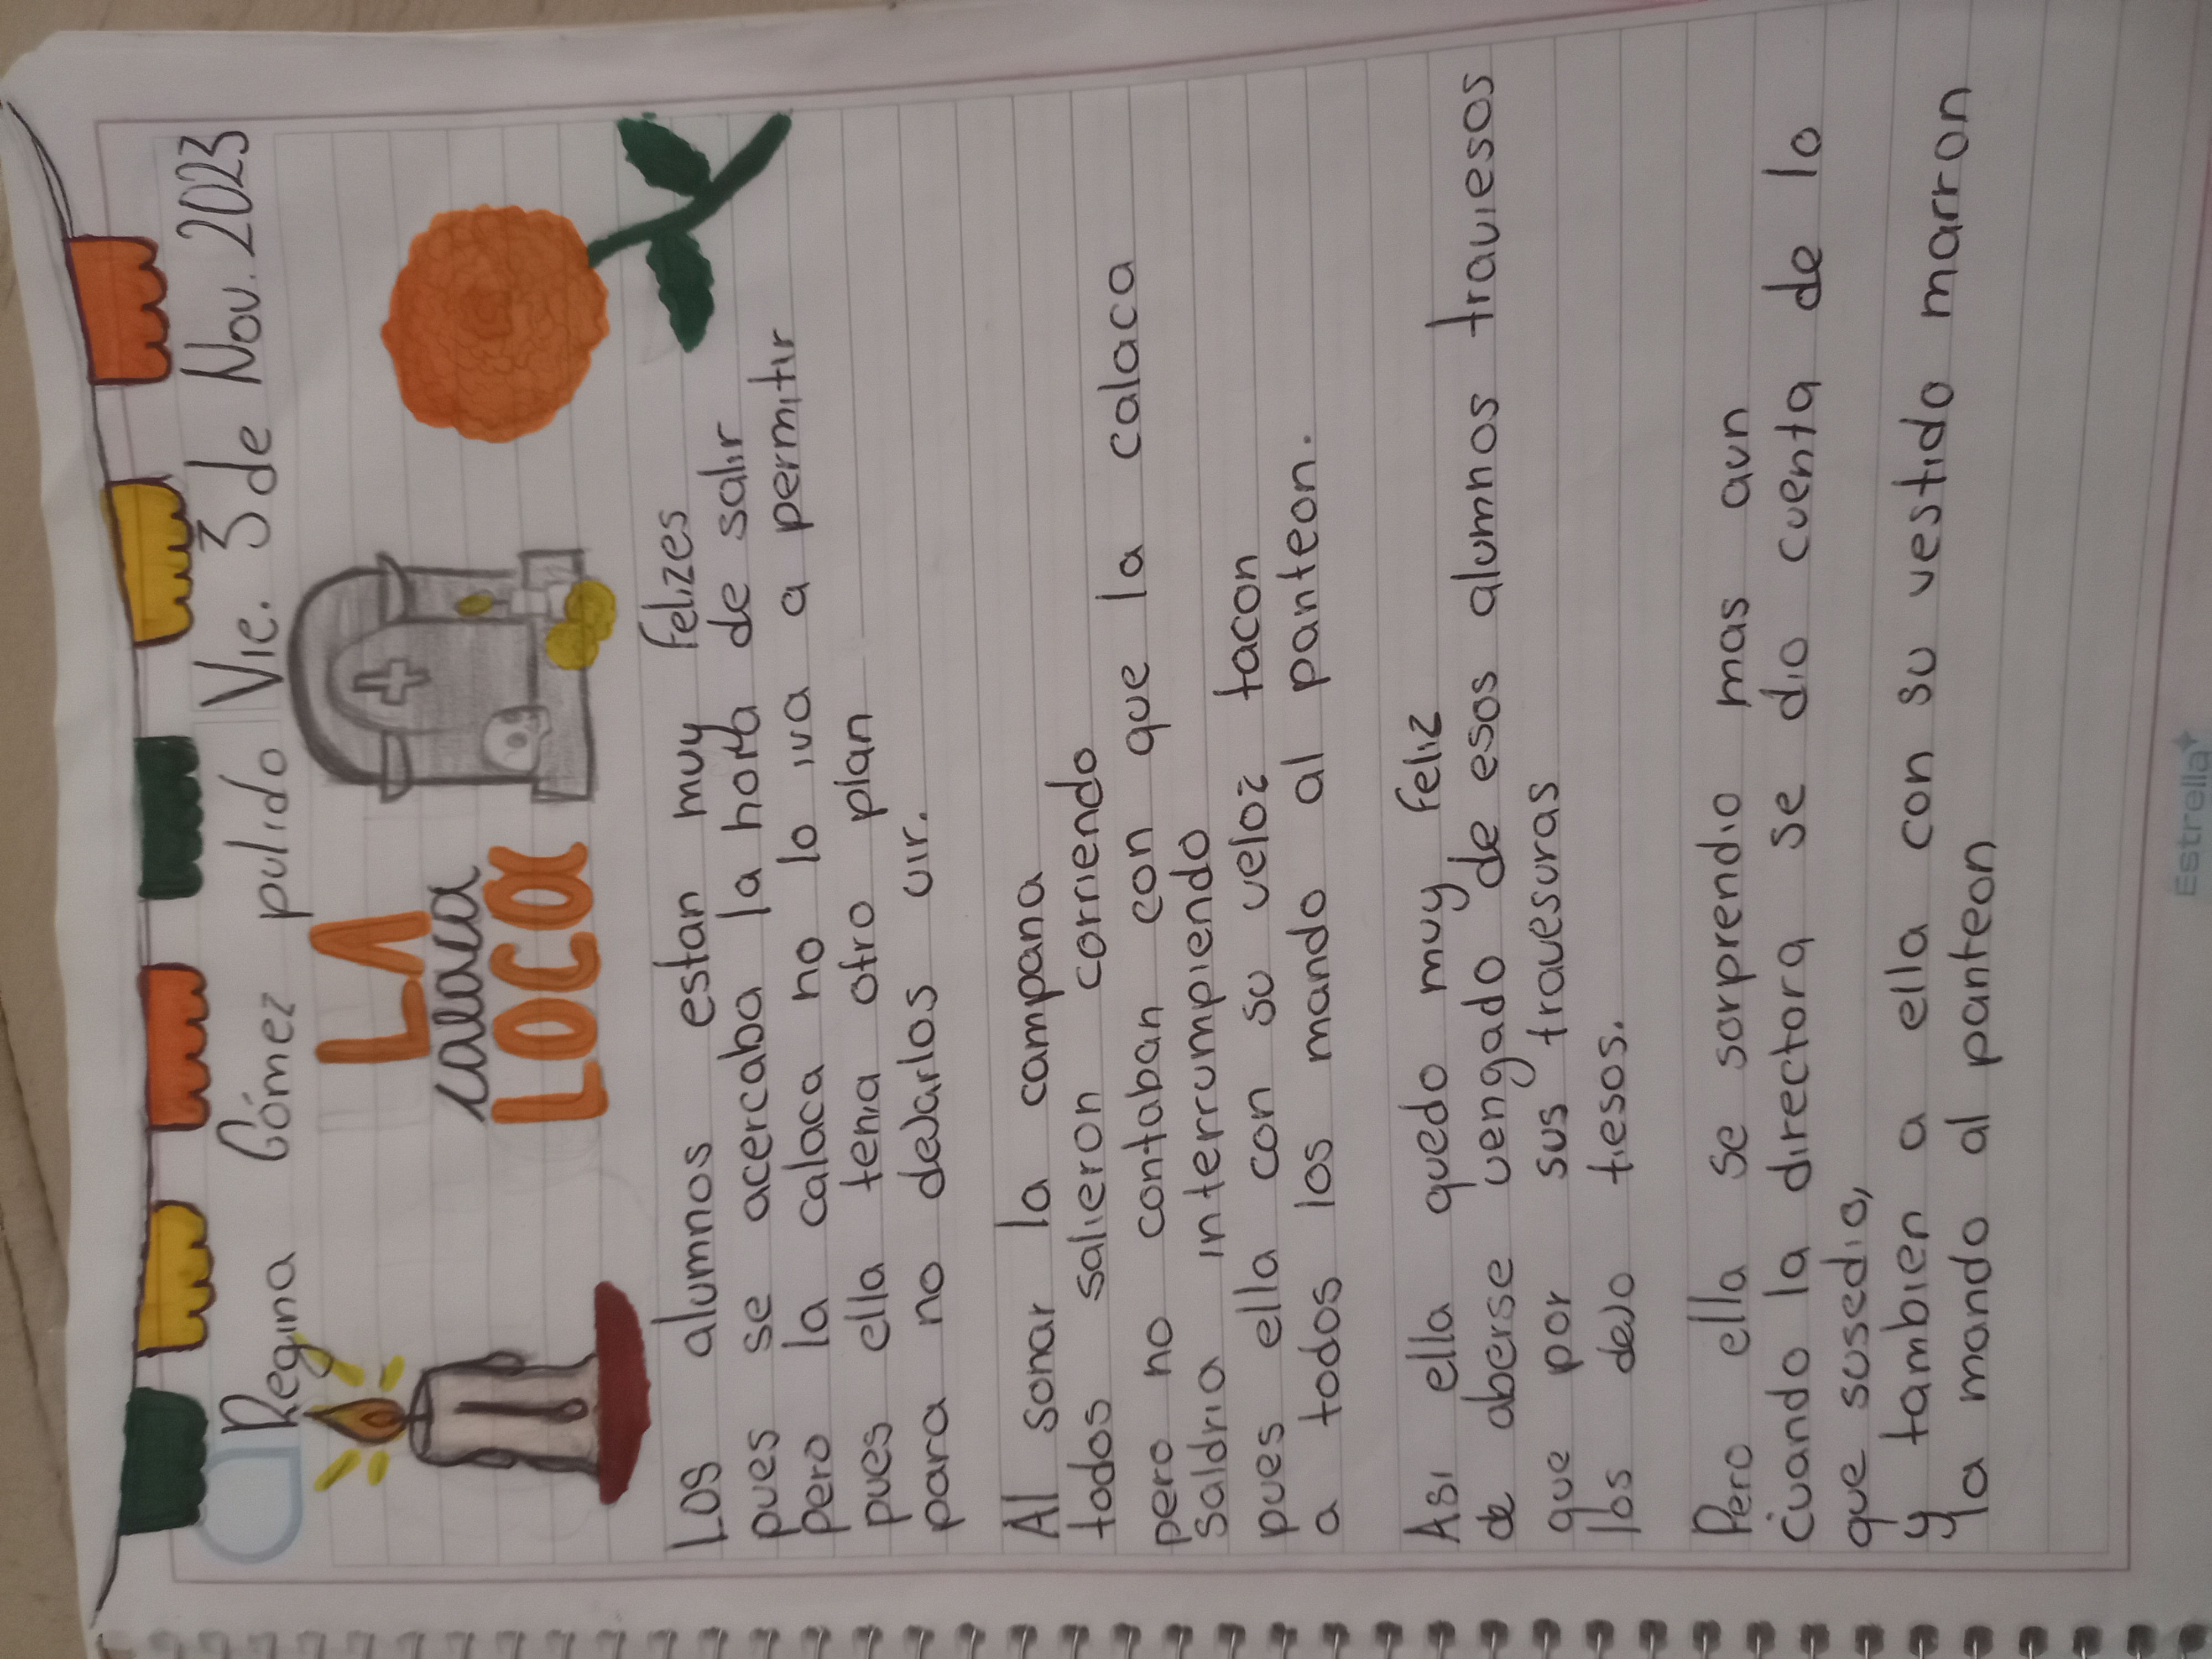 Regina Gómez pulido Vie. 3 de Nov. 2023
LA
calaca
LOCA
Los alumnos estan muy felizes
pues se acercaba la hora de salir
pero la calaca no lo iva a permitir
pues ella tenia otro plan
para no dejarlos vir.
Al sonar la campana
todos salieron corriendo
pero no contaban con que la calaca
saldria interrumpiendo
pues ella con su veloz tacon
a todos los mando al panteon.
Asi ella quedo muy feliz
de aberse vengado de esos alumnos traviesos
que por sus travesuras
los dejo tiesos.
Pero ella se sorprendio mas aun
cuando la directora se dio cuenta de lo
que susedio,
y tambien a ella con su vestido marron
la mando al panteon
Estrella